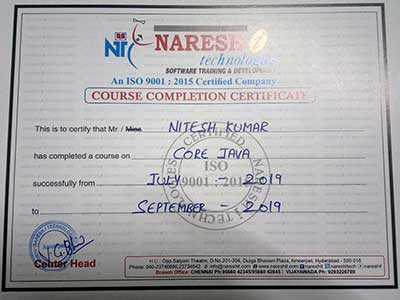 NT
NARESH i
technologies
SOFTWARE TRAINING & DEVELOPMENT
An ISO 9001 : 2015 Certified Company
COURSE COMPLETION CERTIFICATE
This is to certify that Mr. / Miss NITESH KUMAR
has completed a course on CORE JAVA
successfully from JULY - 2019
to SEPTEMBER - 2019
CERTIFIED
ISO
9001 : 2015
NARESH i TECHNOLOGIES
Center Head
H.O.: Opp.Satyam Theatre, D.No.201-204, Durga Bhavani Plaza, Ameerpet, Hyderabad - 500 016
Branch Office : CHENNAI
VIJAYAWADA